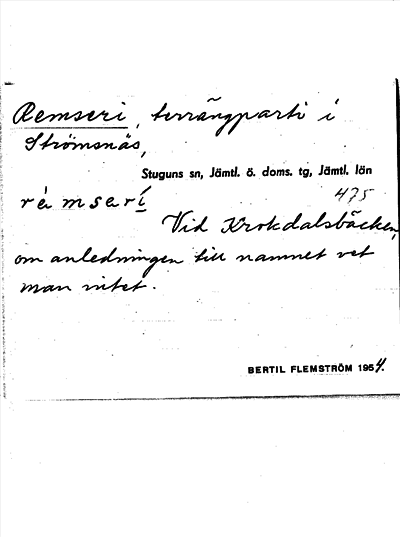 Remseri, terrängparti i
Strömsnäs,
Stuguns sn, Jämtl. ö. doms. tg, Jämtl. län
rèmserí 475
Vid Krokdalsbäcken,
om anledningen till namnet vet
man intet.
BERTIL FLEMSTRÖM 1954.